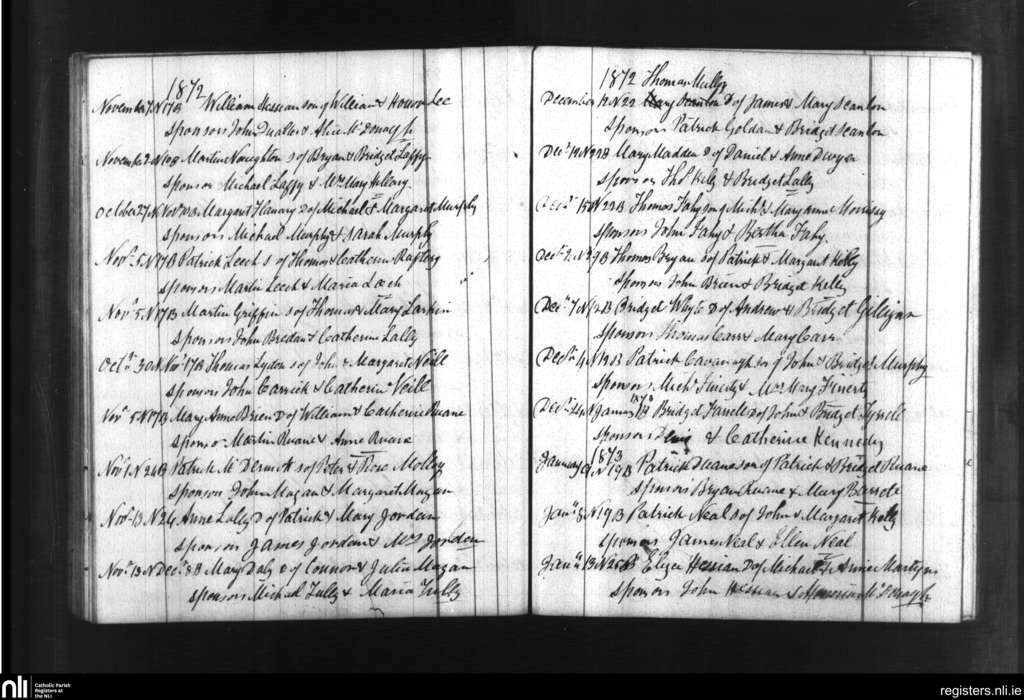 1872
November 7. N 17 B William Hessian son of William & Honor Lee
sponsors John Qualter & Alice McDonagh
November 2. N 10 B Martin Noughton s of Bryan & Bridget Laffy
sponsors Michael Laffy & Mrs Mary Hillary
October 27. N. Margaret Flanary D of Michael & Margaret Murphy
sponsors Michael Murphy & Sarah Murphy
Novr 5. N 17 B Patrick Leech s of Thomas & Catherine Raftery
sponsors Martin Leech & Maria Leech
Novr 5 N 17 B Martin Griffin s of Thomas & Mary Larkin
sponsors John Bredan & Catherine Lally
Octr 30 N Nov 17 B Thomas Lydon s of John & Margaret Neill
sponsors John Carrick & Catherine Neill
Novr 5 N 17 B Mary Anne Brien D of William & Catherine Ruane
sponsors Martin Ruane & Anne Ruane
Novr N 24 B Patrick McDermott s of Peter & Rose Molloy
sponsors John Mogan & Margaret Mogan
Novr 13 N 24 Anne Lally D of Patrick & Mary Jordan
sponsors James Jordan & Mrs Jordan
Novr 13 N Decr 8 B Mary Daly D of Connor & Julia Mogan
sponsors Michael Tully & Maria Tully
1872 Thomas Mullo
December N 22 D of James & Mary Scanlon
sponsors Patrick Goldan & Bridget Scanlon
Decr 19 N 22 B Mary Madden D of Daniel & Anne Dwyer
sponsors Thos Kelly & Bridget Lally
Decr 15 N 22 B Thomas Fahy son of Michl & Mary Anne Morrissy
sponsors John Fahy & Bertha Fahy
Decr 2. N 29 B Thomas Bryan s of Patrick & Margaret Kelly
sponsors John Brien & Bridget Kelly
Decr 7 N 12 B Bridget Whyte D of Andrew & Bridget Gilligan
sponsors Thomas Carr & Mary Carr
Decr 4 N 19 B Patrick Cavanagh son of John & Bridget Murphy
sponsors Michl & Mrs Mary Finerty
Decr 24 N January 1873 B Bridget Farrell D of John & Bridget Tyrrell
sponsors & Catherine Kennedy
1873
January N 19 B Patrick Duane son of Patrick & Bridget Ruane
sponsors Bryan Ruane & Mary Barrete
Janr 8 N 19 B Patrick Neal s of John & Margaret Kelly
sponsors James Neal & Ellen Neal
Janr 13 N 26 B Eliza Hessian D of Michael & Anne Martyn
sponsors John Hessian & Honoria McDonagh
nli Catholic Parish
Registers at
the NLI
registers.nli.ie